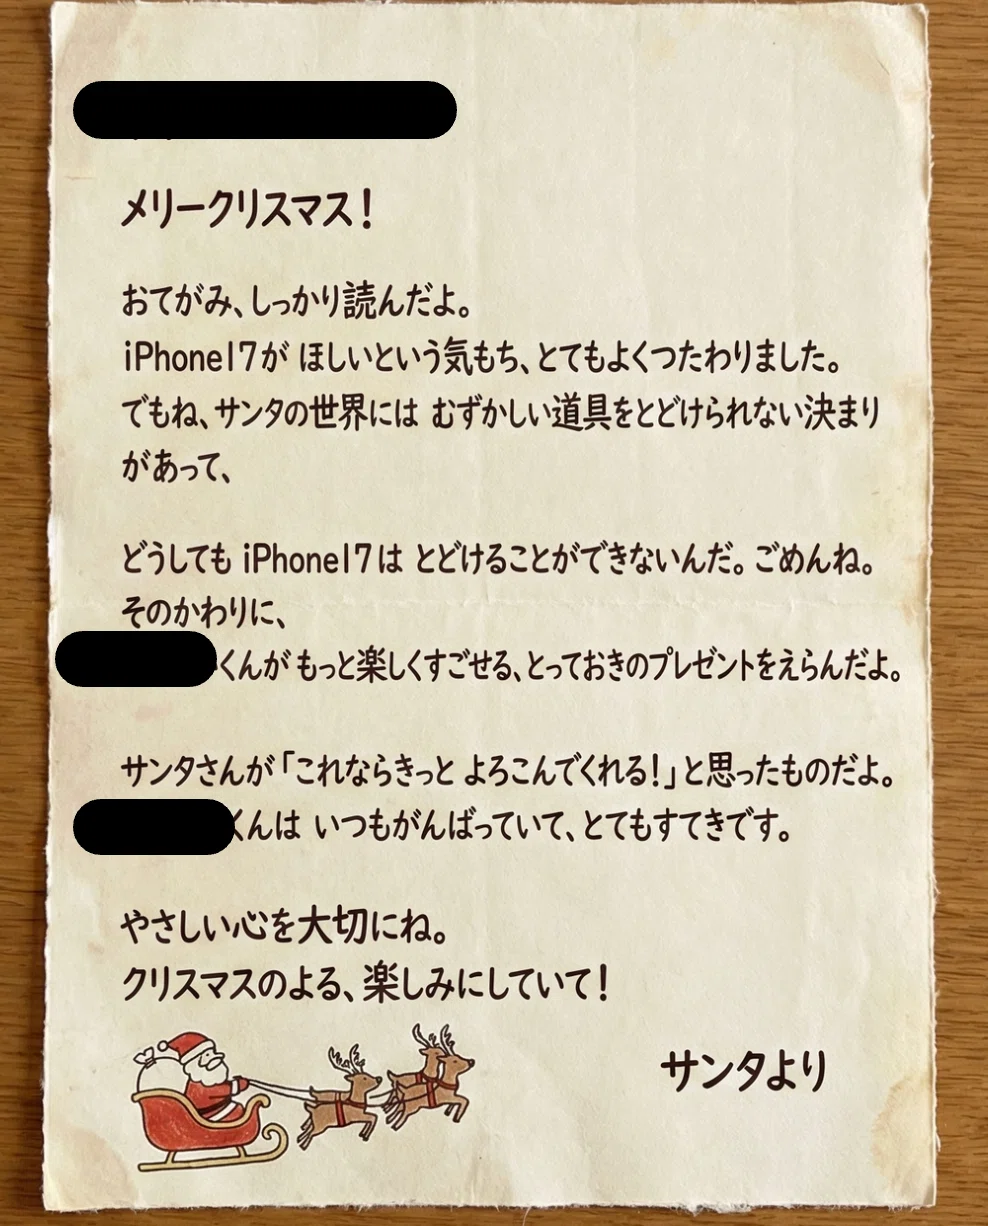 メリークリスマス！
おてがみ、しっかり読んだよ。
iPhone17が ほしいという気もち、とてもよくつたわりました。
でもね、サンタの世界には むずかしい道具をとどけられない決まり
があって、
どうしても iPhone17は とどけることができないんだ。ごめんね。
そのかわりに、
くんが もっと楽しくすごせる、とっておきのプレゼントをえらんだよ。
サンタさんが「これならきっと よろこんでくれる！」と思ったものだよ。
くんは いつもがんばっていて、とてもすてきです。
やさしい心を大切にね。
クリスマスのよる、楽しみにしていて！
サンタより